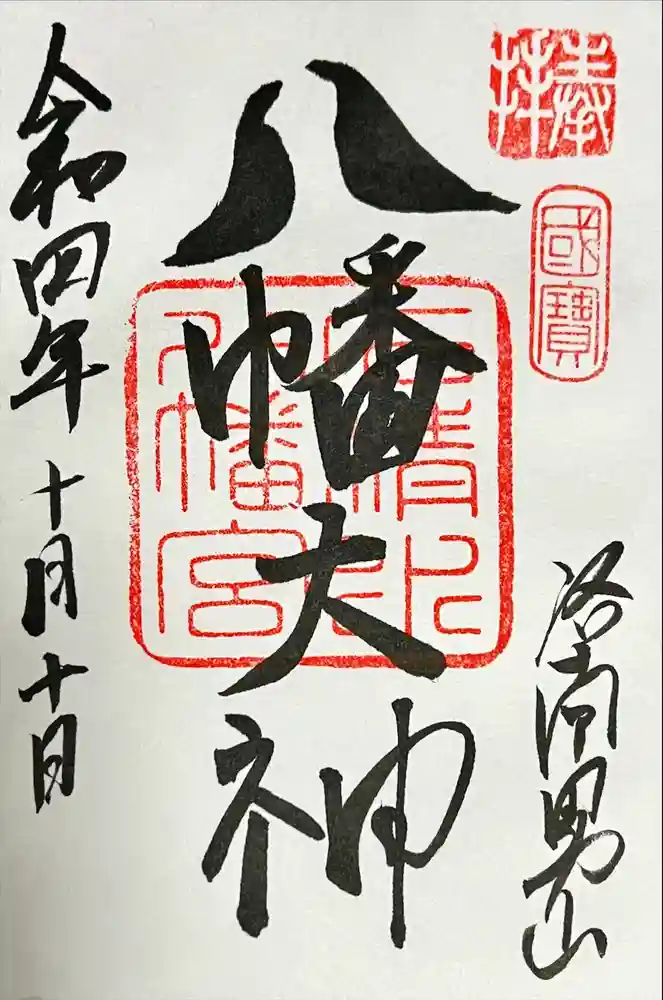 奉拝
國寶
洛南男山
八幡大神
石清水
八幡宮
令和四年十月十日